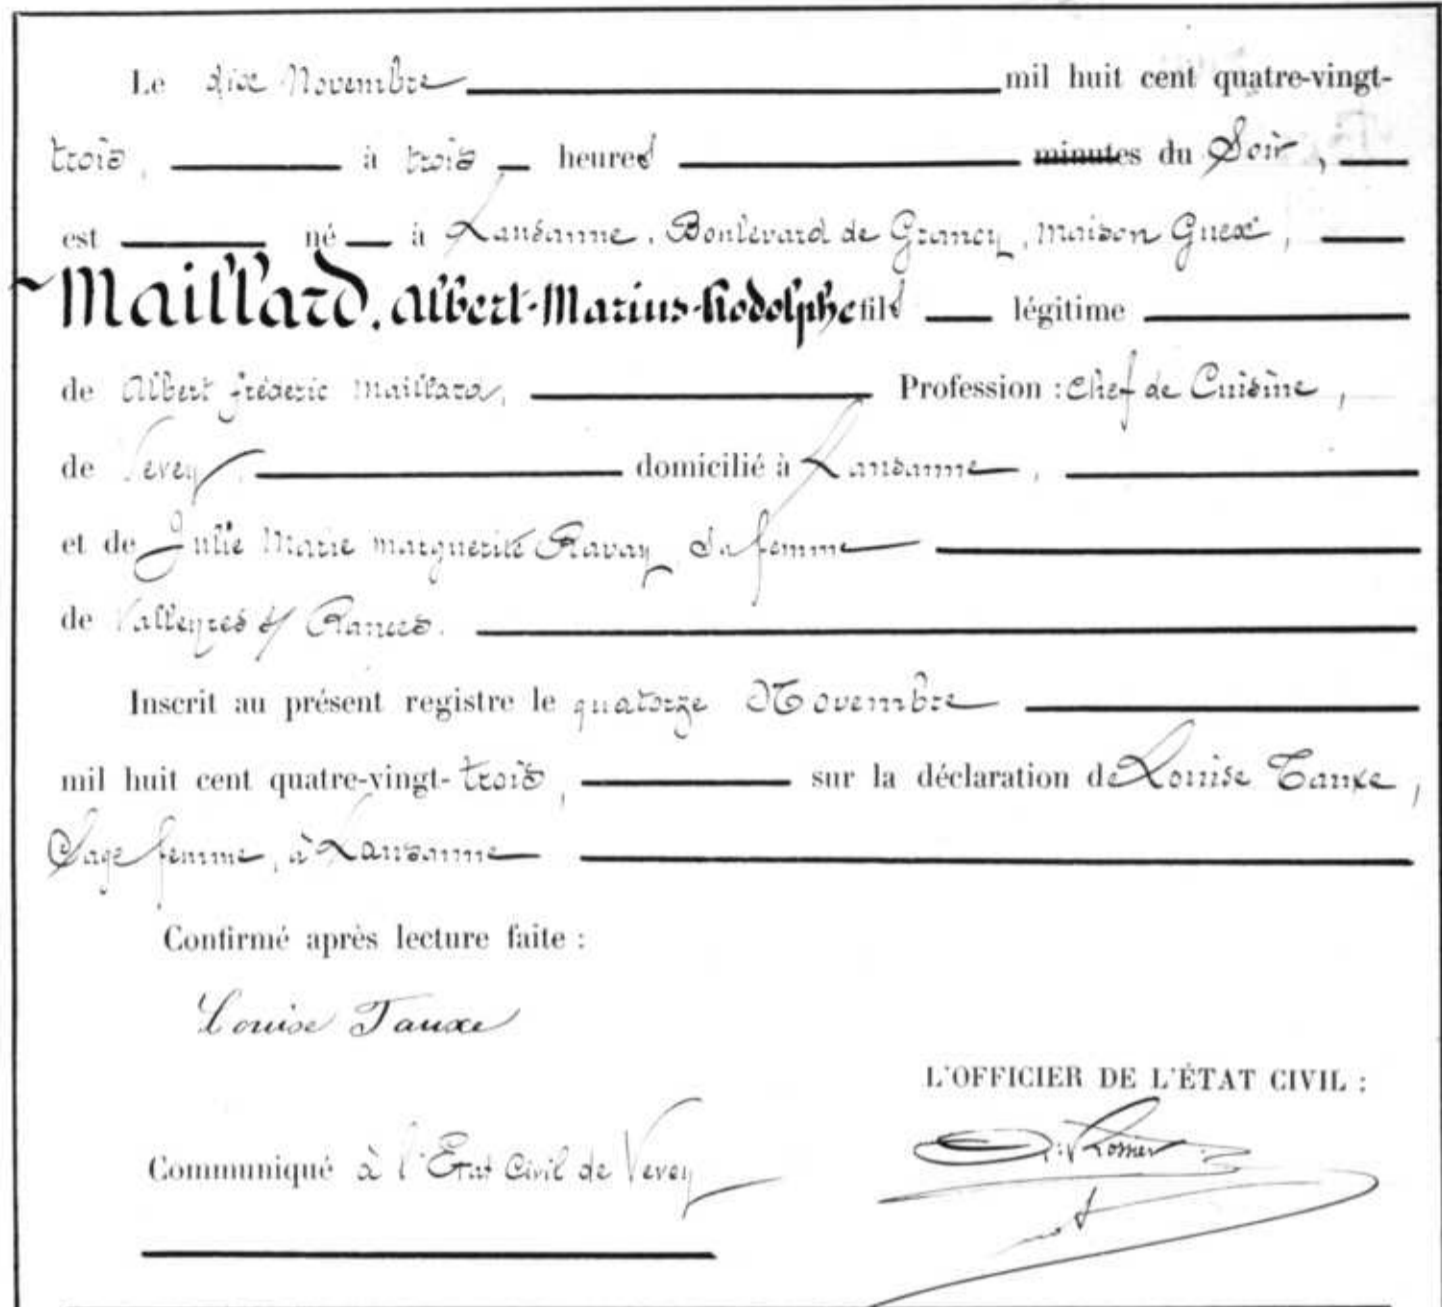 Le dix Novembre mil huit cent quatre-vingt-
trois, à trois heures minutes du Soir,
est né à Lausanne, Boulevard de Grancy, maison Guex,
Maillard, Albert-Marius-Rodolphe fils légitime
de Albert fréderic Maillard, Profession : Chef de Cuisine,
de Vevey, domicilié à Lausanne,
et de Julie Marie marguerite Ravay sa femme
de Valleyres s/ Rances.
Inscrit au présent registre le quatorze Novembre
mil huit cent quatre-vingt-trois, sur la déclaration de Louise Tauxe,
Sage femme, à Lausanne
Confirmé après lecture faite :
Louise Tauxe
L'OFFICIER DE L'ÉTAT CIVIL :
Communiqué à l'Etat Civil de Vevey